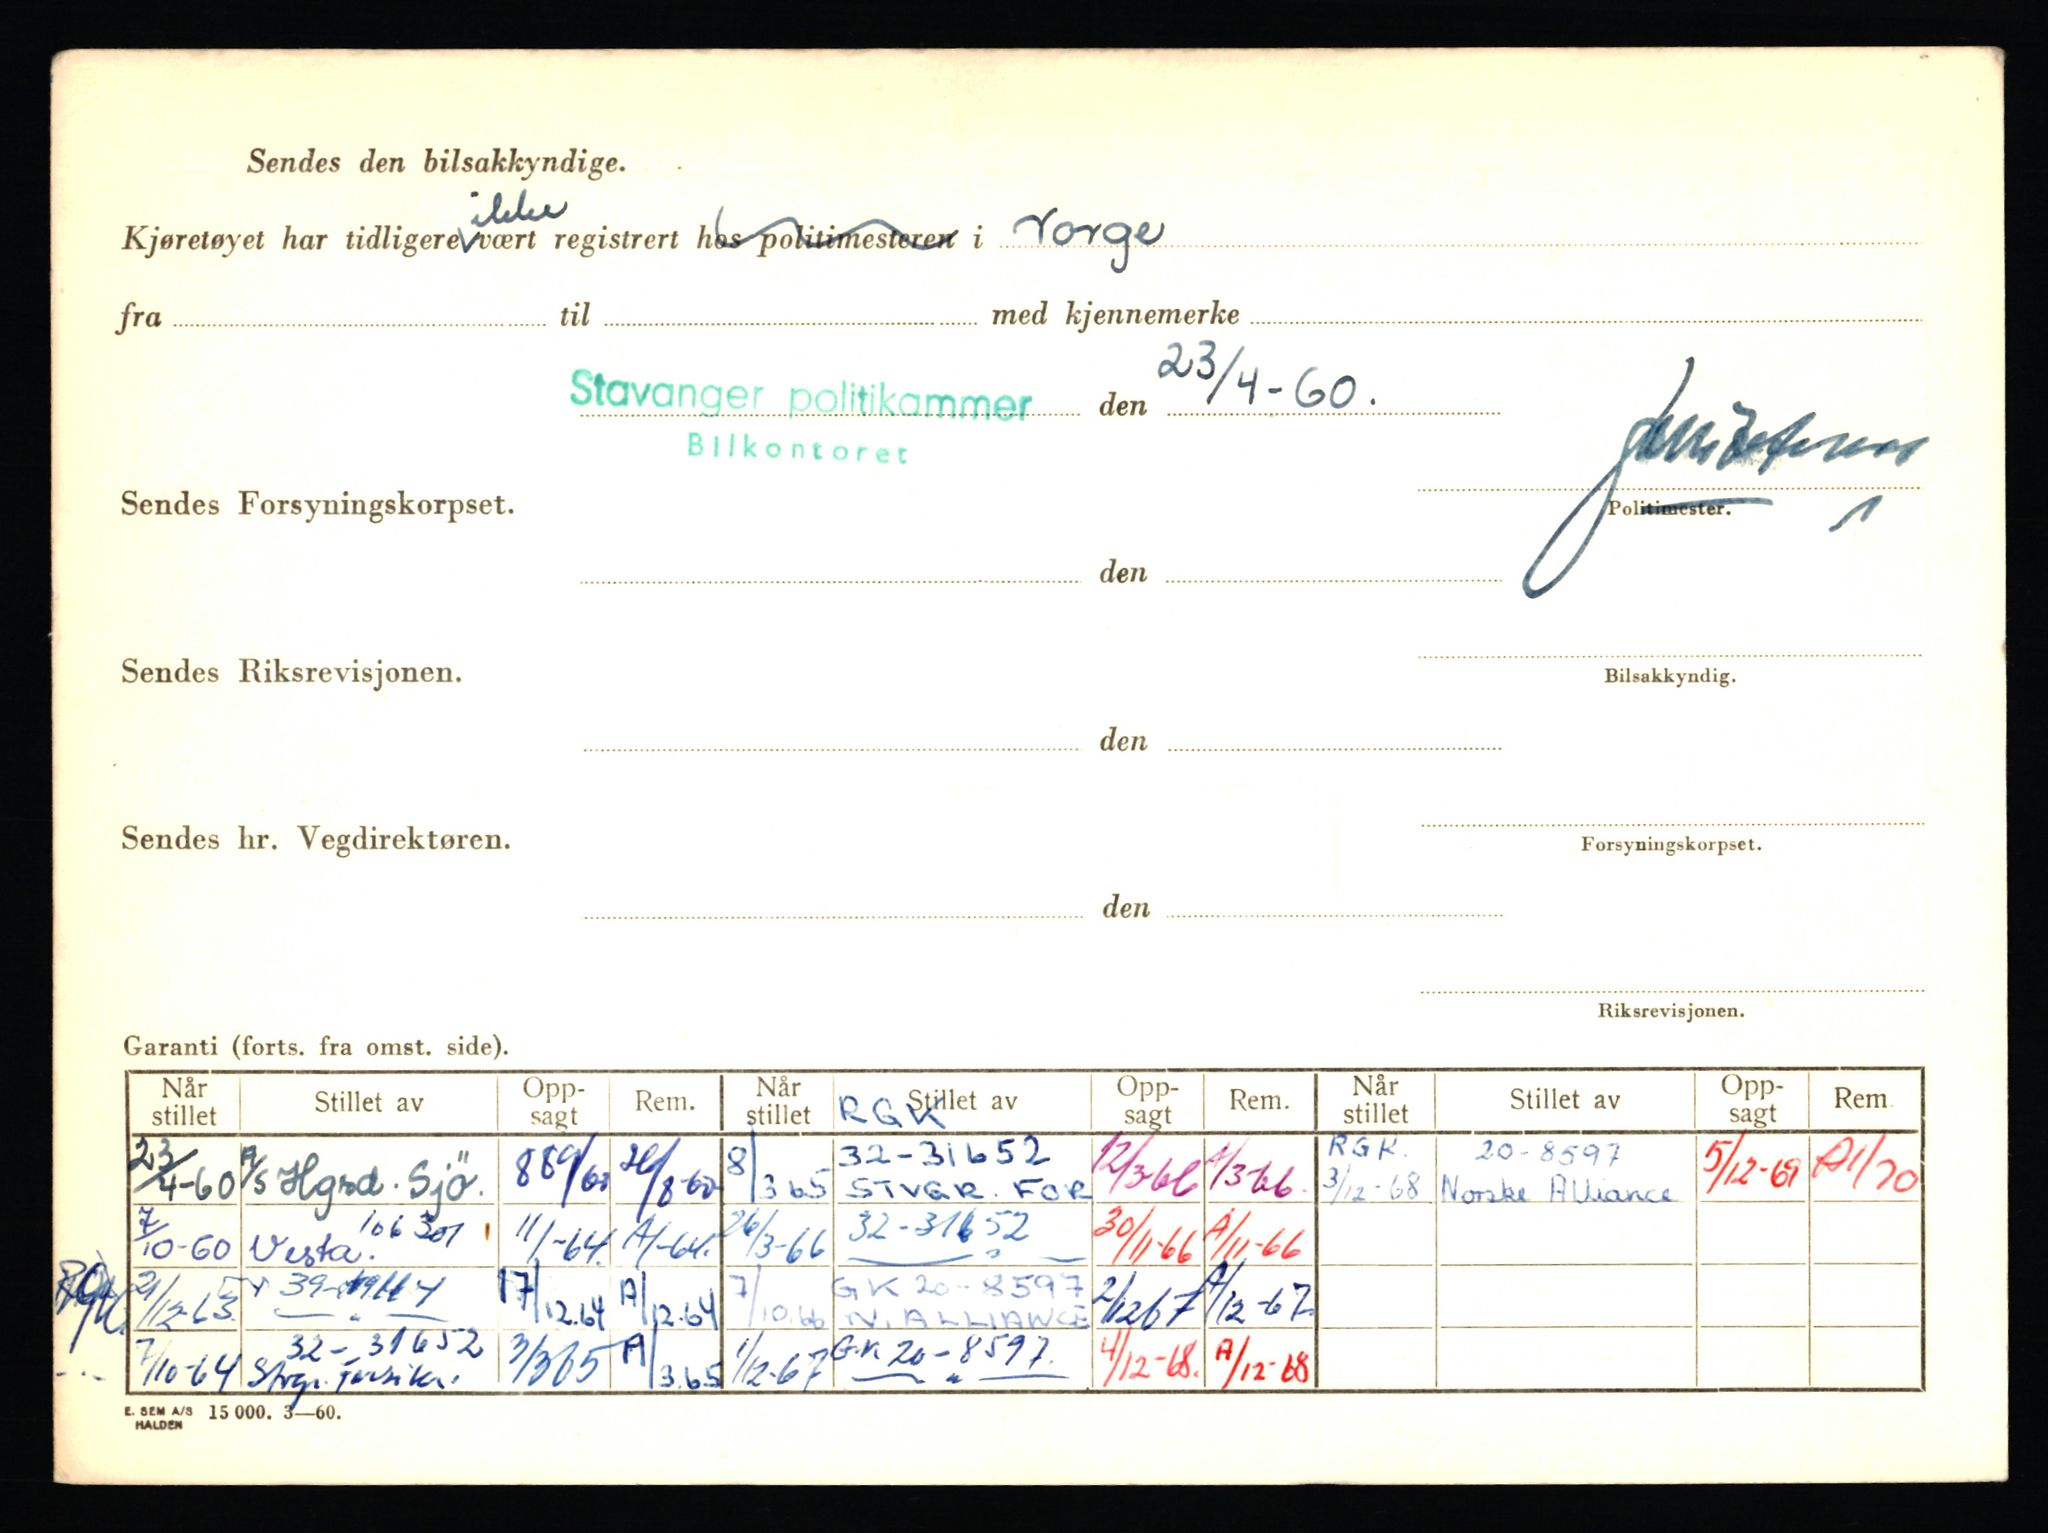 Sendes den bilsakkyndige.
ikke
Kjøretøyet har tidligere vært registrert hos politimesteren i Norge
fra til med kjennemerke
Stavanger politikammer den 23/4-60.
Bilkontoret
Sendes Forsyningskorpset.
Politimester.
den
Sendes Riksrevisjonen.
Bilsakkyndig.
den
Sendes hr. Vegdirektøren.
Forsyningskorpset.
den
Riksrevisjonen.
Garanti (forts. fra omst. side).
Når stillet Stillet av Opp-sagt Rem. Når stillet Stillet av Opp-sagt Rem. Når stillet Stillet av Opp-sagt Rem
RGK
23/4-60 A/S Hgsd. Sjö. 889/60 /8-60 8/3 65 32-31652 STVGR. FOR 12/3-66 1/3-66. RGK. 3/12-68 20-8597 Norske Alliance 5/12-69 A1/70
7/10-60 Vesta. 106301 11/1-64. A/1-64. 26/3-66 32-31652 — " — 30/11-66 A/11-66
21/12-63. — " — 17/12.64 A/12.64 7/10.66 GK 20-8597 N. ALLIANCE 2/12 67 A/12-67.
7/10-64 32-31652 Stvgr. Forsikr. 3/3 65 A/3.65 1/12-67 G.K 20-8597. — " — 4/12-68. A/12-68
E. SEM A/S HALDEN 15 000. 3—60.